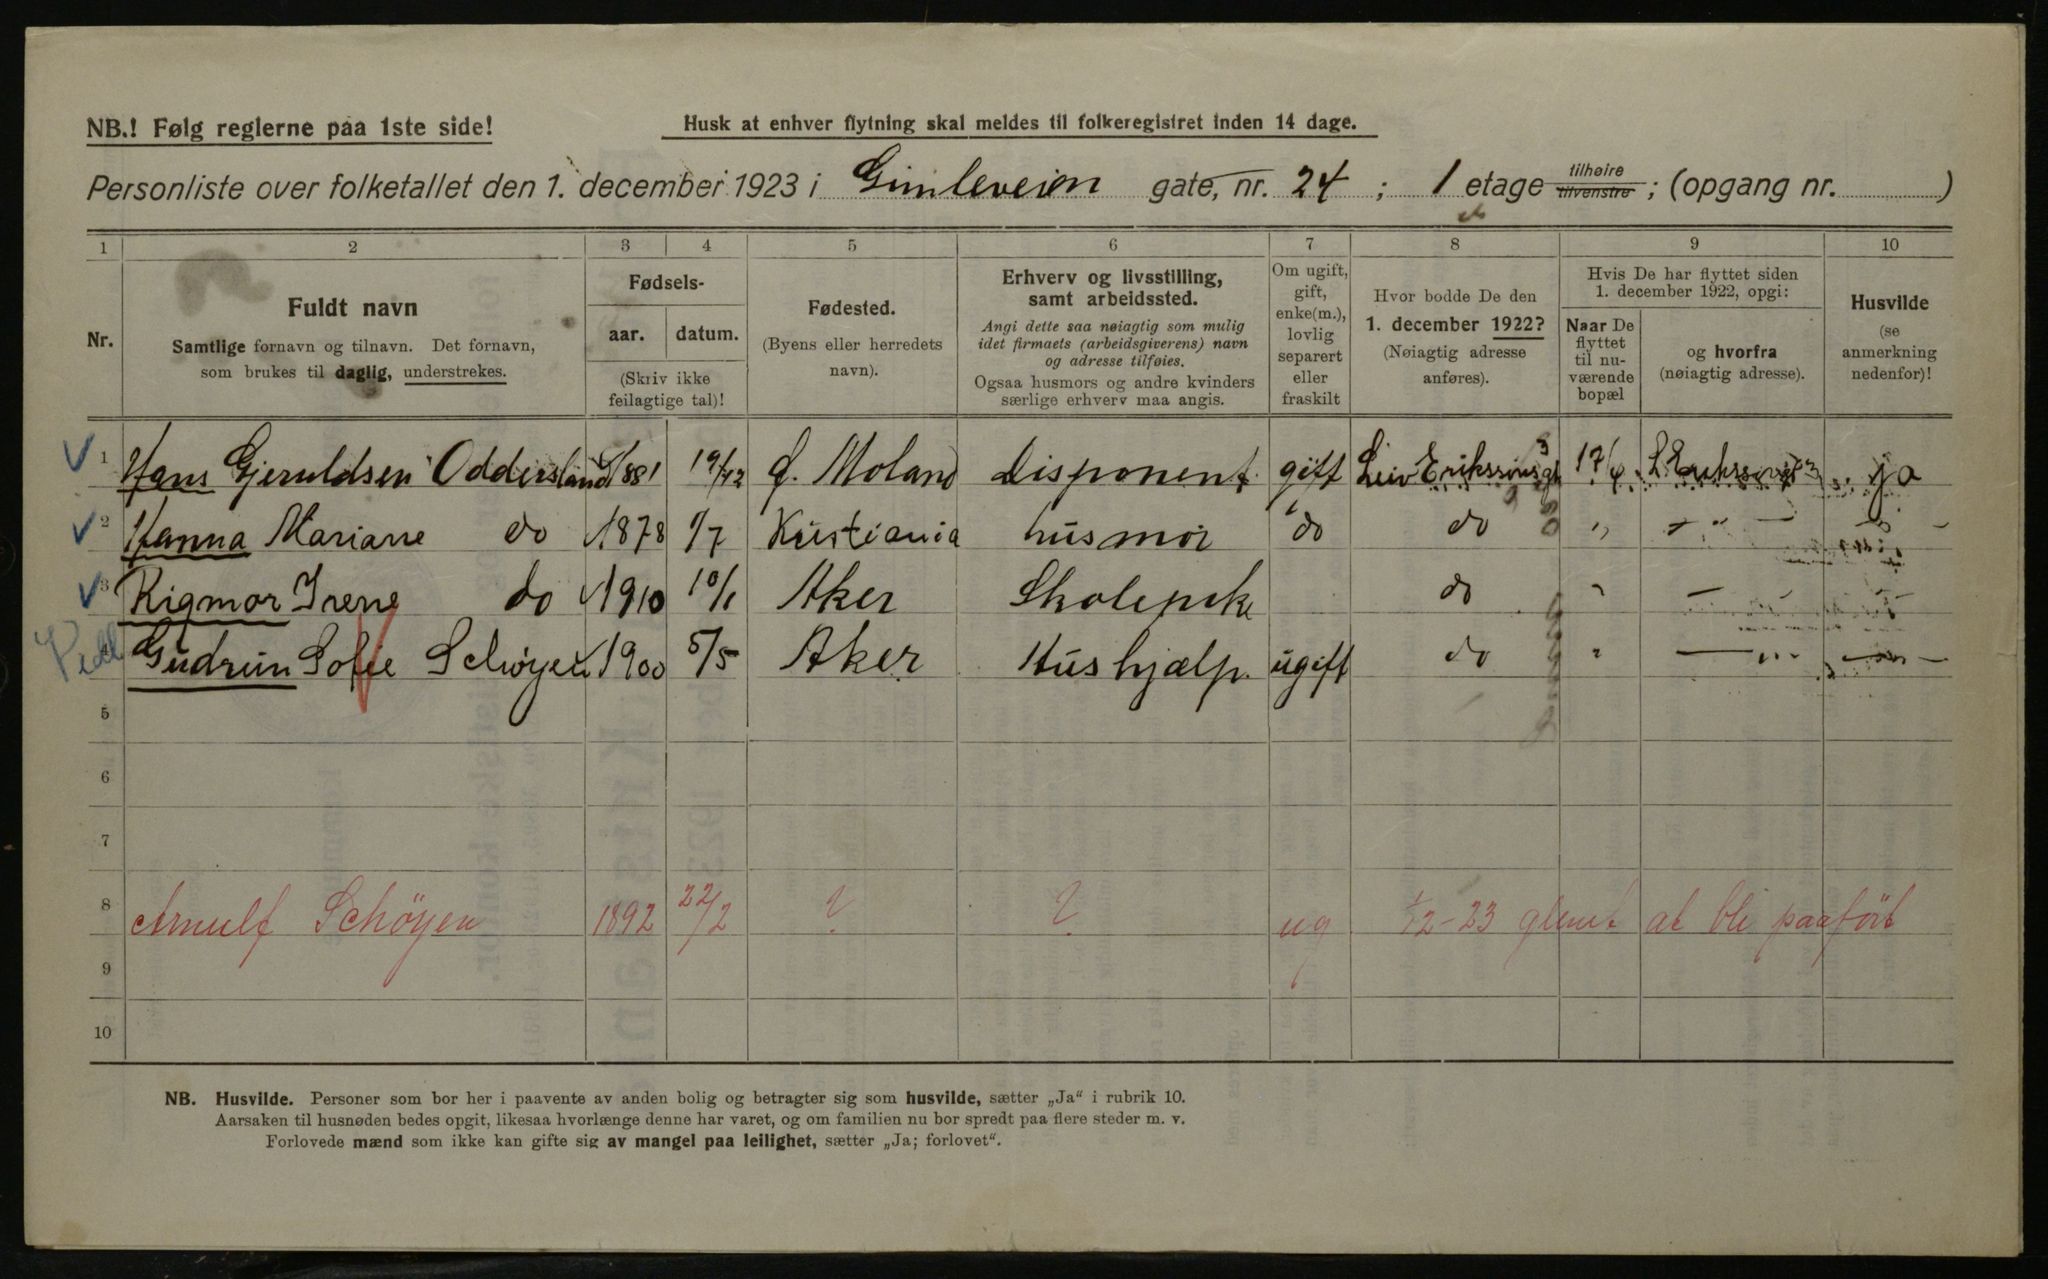 NB.! Følg reglerne paa 1ste side!
Husk at enhver flytning skal meldes til folkeregistret inden 14 dage.
Personliste over folketallet den 1. december 1923 i Gimleveien gate, nr. 24 ; 1 etage tilhøire tilvenstre ; (opgang nr. )
1 2 3 4 5 6 7 8 9 10
Nr.
Fuldt navn
Samtlige fornavn og tilnavn. Det fornavn,
som brukes til daglig, understrekes.
Fødsels-
aar. datum.
(Skriv ikke
feilagtige tal)!
Fødested.
(Byens eller herredets
navn).
Erhverv og livsstilling,
samt arbeidssted.
Angi dette saa nøiagtig som mulig
idet firmaets (arbeidsgiverens) navn
og adresse tilføies.
Ogsaa husmors og andre kvinders
særlige erhverv maa angis.
Om ugift,
gift,
enke(m.),
lovlig
separert
eller
fraskilt
Hvor bodde De den
1. december 1922?
(Nøiagtig adresse
anføres).
Hvis De har flyttet siden
1. december 1922, opgi:
Naar De
flyttet
til nu-
værende
bopæl
og hvorfra
(nøiagtig adresse).
Husvilde
(se
anmerkning
nedenfor)!
1 Hans Gjeruldsen Oddersland 1881 19/12 Ø. Moland Disponent gift Leiv Erikssønsgt 3 17/4 ja
2 Hanna Marianne do 1878 1/7 Kristiania husmor do do „ — „ —
3 Rigmor Irene do 1910 10/1 Aker Skolepike do „ —
4 Gudrun Sofie Schøyen 1900 5/5 Aker Hushjælp ugift do „ —
5
6
7
8 Arnulf Schöyen 1892 22/2 ? ? ug 1/2-23 glemt at bli paaført
9
10
NB. Husvilde. Personer som bor her i paavente av anden bolig og betragter sig som husvilde, sætter „Ja“ i rubrik 10.
Aarsaken til husnøden bedes opgit, likesaa hvorlænge denne har varet, og om familien nu bor spredt paa flere steder m. v.
Forlovede mænd som ikke kan gifte sig av mangel paa leilighet, sætter „Ja; forlovet“.